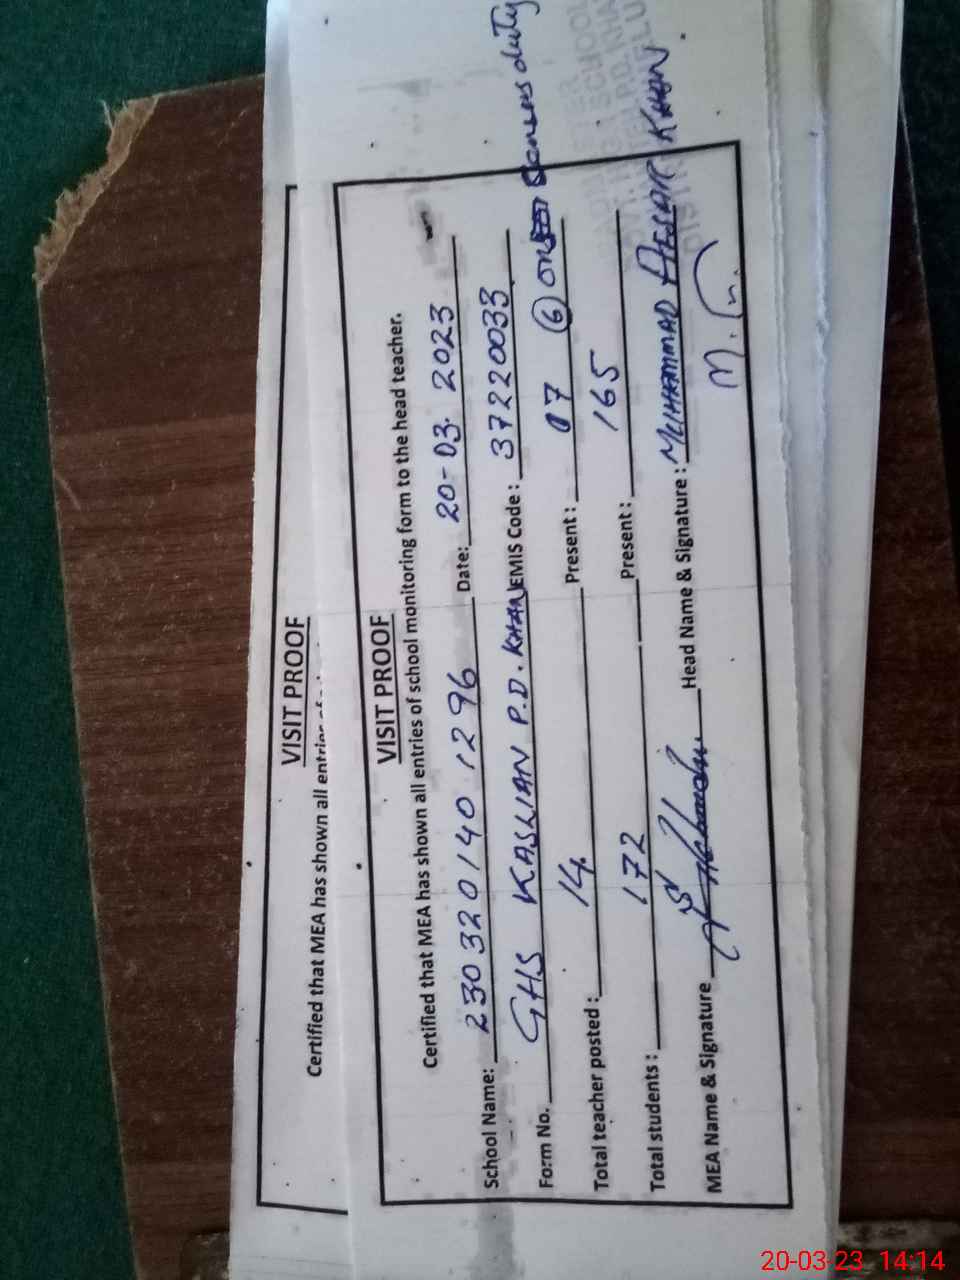 VISIT PROOF
Certified that MEA has shown all entries of
VISIT PROOF
Certified that MEA has shown all entries of school monitoring form to the head teacher.
School Name: 230320140 1296 Date: 20-03-2023
Form No. GHS KASLIAN P.D.KHAN EMIS Code: 37220033
Total teacher posted: 14 Present: 07 (6) on census duty
Total students: 172 Present: 165
MEA Name & Signature Head Name & Signature: MUHAMMAD AFSAR KHAN.
SCHOOL
P.D. KHAN
20-03-23 14:14